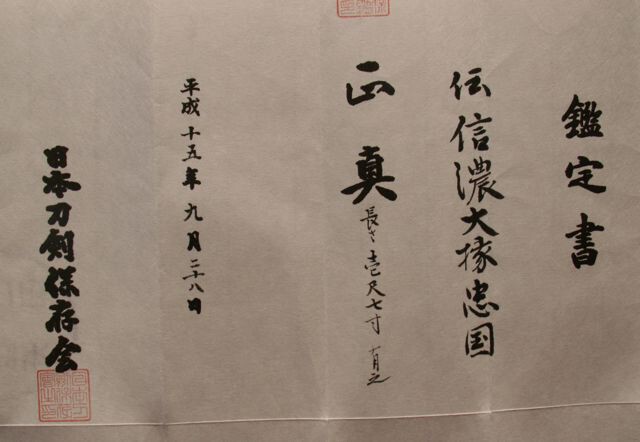 鑑定書
伝 信濃大掾忠国
正真
長さ壱尺七寸 有之
平成十五年九月二十八日
日本刀剣保存会